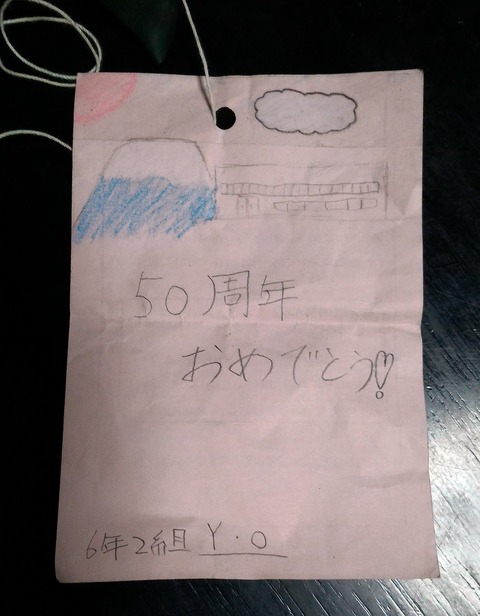 50周年
おめでとう!
6年2組 Y.O